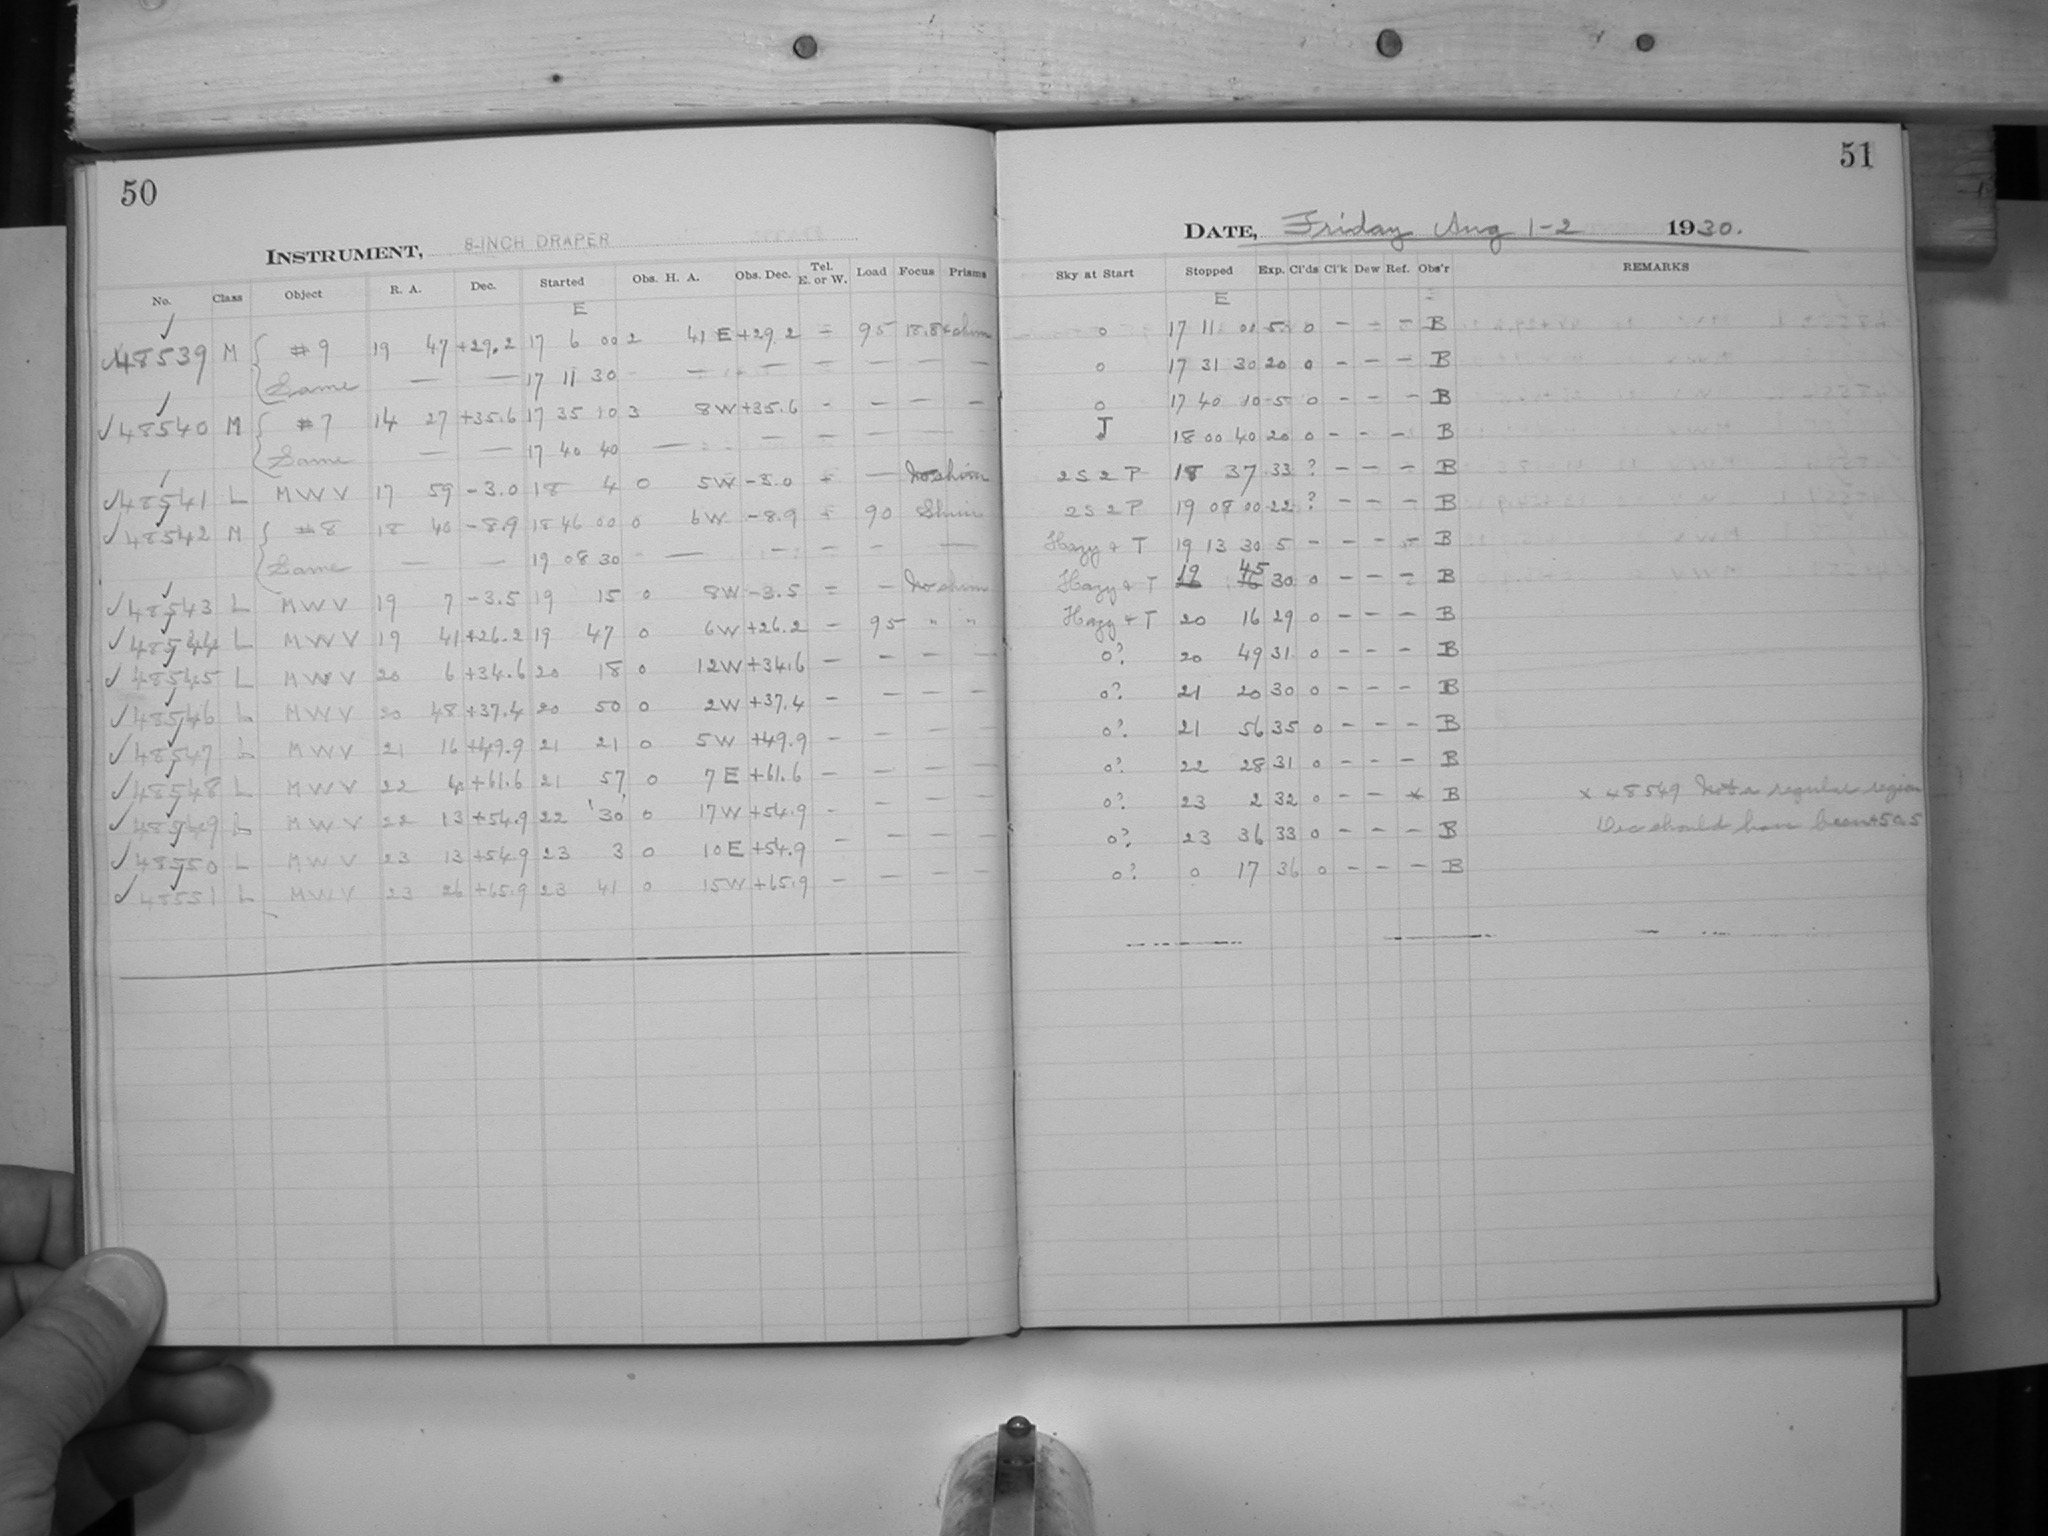 50
INSTRUMENT, 8-INCH DRAPER
No. Class Object R. A. Dec. Started Obs. H. A. Obs. Dec. Tel. E. or W. Load Focus Prisms
E
48539 M #9 19 47 +29.2 17 6 00 2 41 E +29.2 = 95 18.8 + shim
Same — — 17 11 30 - — — — — — —
48540 M #7 14 27 +35.6 17 35 10 3 8W +35.6 - — — —
Same — — 17 40 40 — — — — —
48541 L MWV 17 59 -3.0 18 4 0 5W -3.0 — No shim
48542 M #8 18 40 -8.9 18 46 00 0 6W -8.9 90 Shim
Same — — 19 08 30 - — — — - —
48543 L MWV 19 7 -3.5 19 15 0 8W -3.5 = - No shim
48544 L MWV 19 41 +26.2 19 47 0 6W +26.2 — 95 " "
48545 L MWV 20 6 +34.6 20 18 0 12W +34.6 — — — —
48546 L MWV 20 48 +37.4 20 50 0 2W +37.4 — — — —
48547 L MWV 21 16 +49.9 21 21 0 5W +49.9 — — — —
48548 L MWV 22 4 +61.6 21 57 0 7 E +61.6 — — — —
48549 L MWV 22 13 +54.9 22 30 0 17W +54.9 — — — —
48550 L MWV 23 13 +54.9 23 3 0 10E +54.9 — — — —
48551 L MWV 23 26 +65.9 23 41 0 15W +65.9 — — — —
51
DATE, Friday Aug 1-2 1930.
Sky at Start Stopped Exp. Cl'ds Cl'k Dew Ref. Obs'r REMARKS
E
0 17 11 00 5 0 - - - B
0 17 31 30 20 0 - - - B
0 17 40 10 5 0 - - - B
T 18 00 40 20 0 - - - B
2S 2P 18 37 33 ? - - - B
2S 2P 19 08 00 22 ? - - - B
Hazy + T 19 13 30 5 - - - - B
Hazy + T 19 45 30 0 - - - B
Hazy + T 20 16 29 0 - - - B
0? 20 49 31 0 - - - B
0? 21 20 30 0 - - - B
0? 21 56 35 0 - - - B
0? 22 28 31 0 - - - B
0? 23 2 32 0 - - x B x 48549 Not a regular region
0? 23 36 33 0 - - - B Dec should have been +50.5
0? 0 17 36 0 - - - B